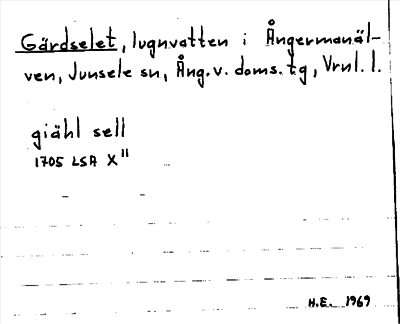 Gärdselet, lugnvatten i Ångermanäl-
ven, Junsele sn, Ång. v. doms. tg, Vrnl. l.
giähl sell
1705 LSA X"
H.E. 1969